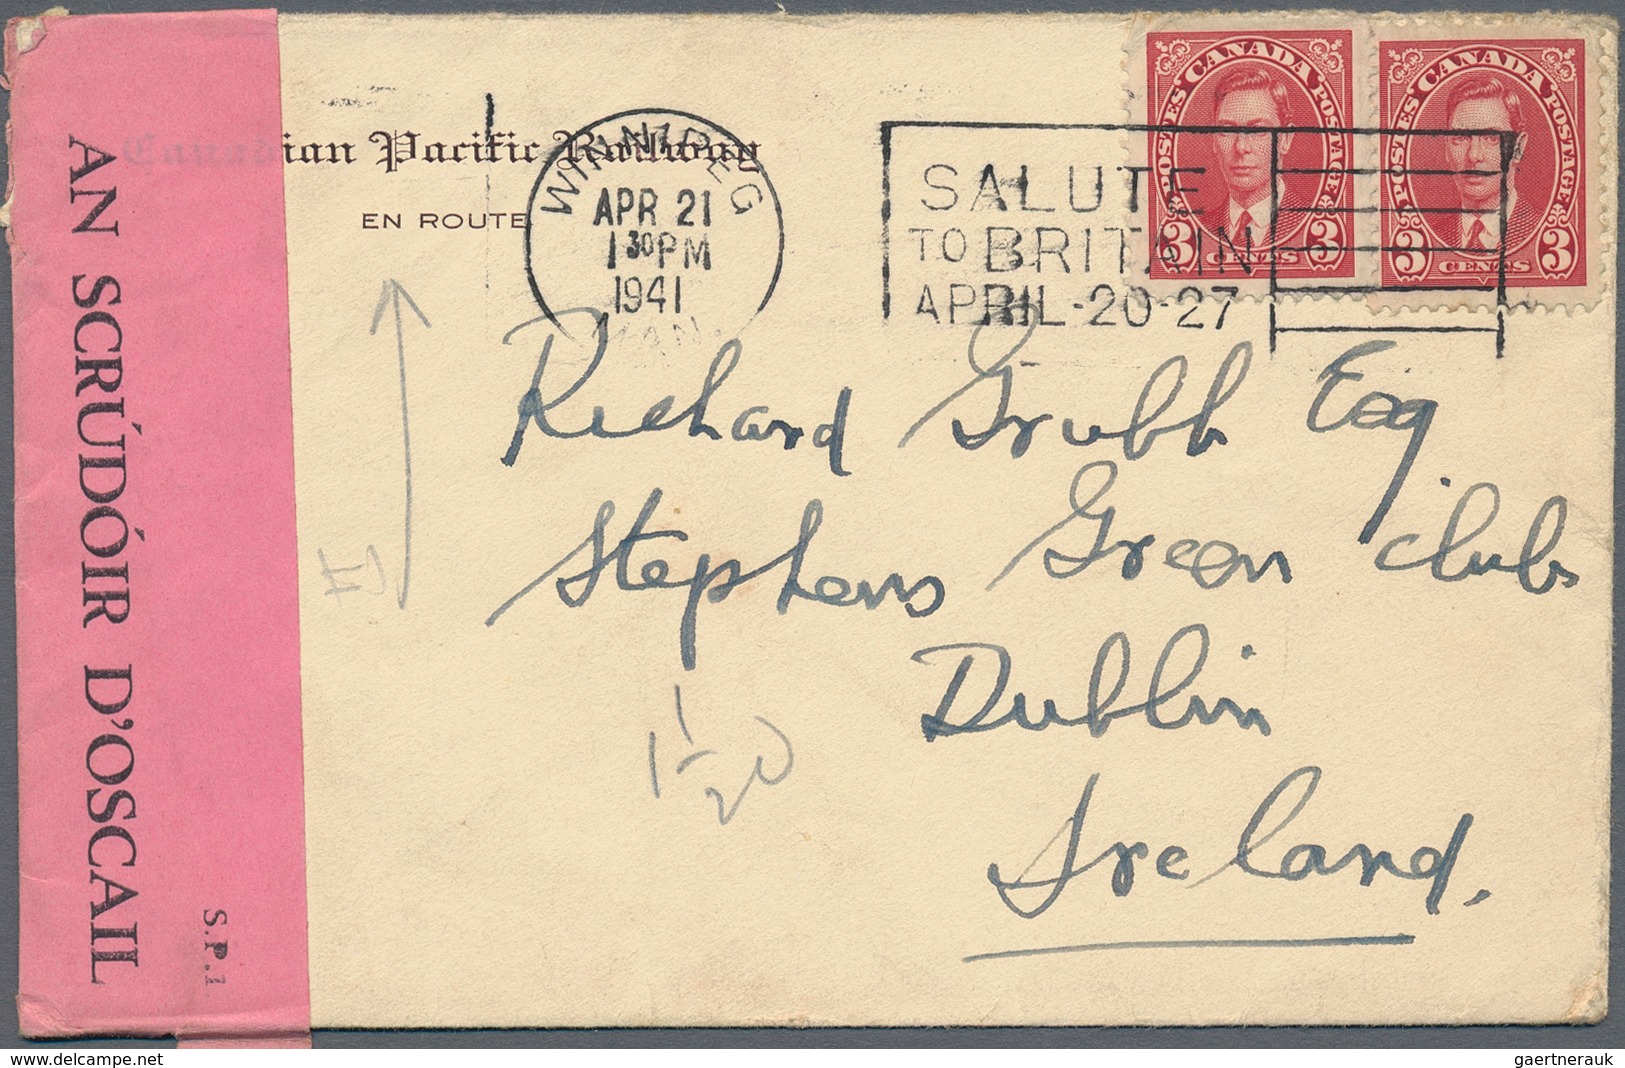 Canadian Pacific Railway
EN ROUTE
WINNIPEG
APR 21
1 30 PM
1941
MAN.
SALUTE
TO BRITAIN
APRIL-20-27
POSTES CANADA POSTAGE
3 CENTS 3
POSTES CANADA POSTAGE
3 CENTS 3
AN SCRÚDÓIR D'OSCAIL
S.P.1.
Richard Grubb Esq.
Stephens Green Club
Dublin
Ireland.
gaertnerauk
www.delcampe.net